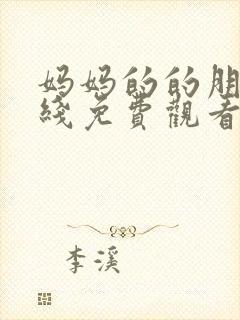 妈妈的的朋
綫免費觀看
李溪